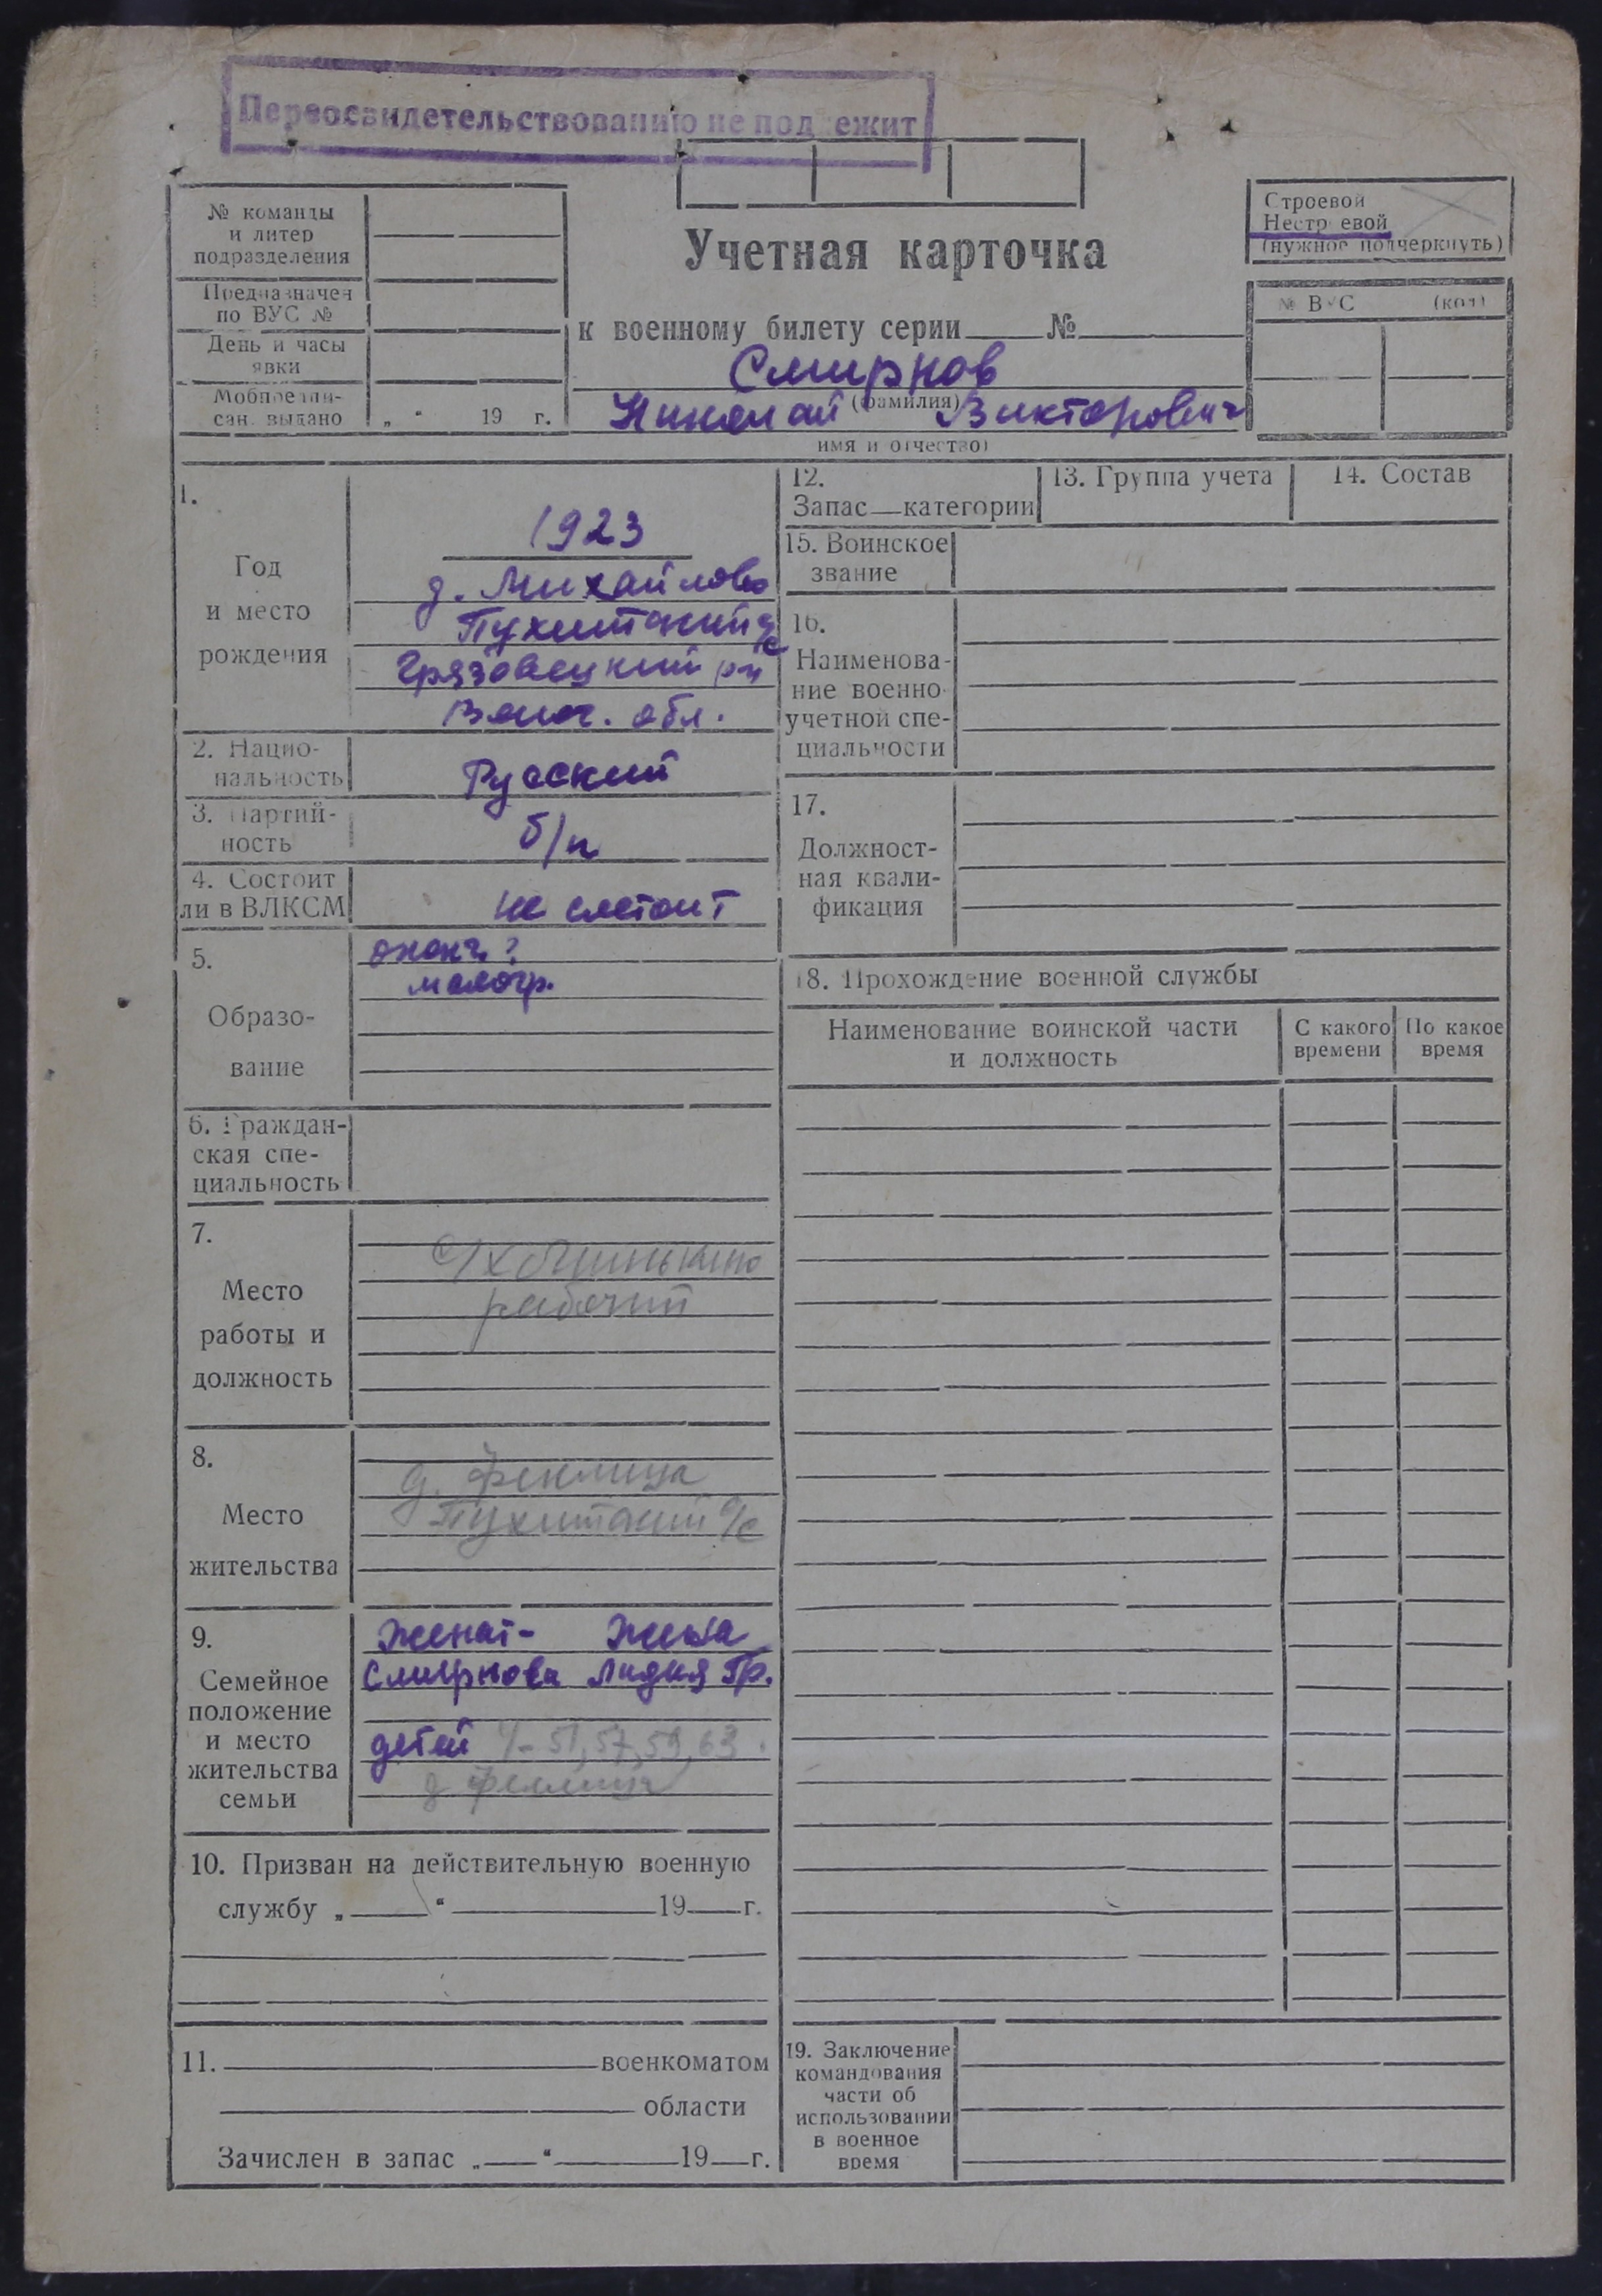 Переосвидетельствованию не подлежит
№ команды
и литер
подразделения
Предназначен
по ВУС №
День и часы
явки
Мобпредпи-
сан. выдано „ “ 19 г.
Учетная карточка
к военному билету серии № 
Смирнов
(фамилия)
Николай Викторович
имя и отчество)
Строевой
Нестроевой
(нужное подчеркнуть)
№ ВУС (код)
1.
Год
и место
рождения
1923
д. Михайлово
Пухитский с/с
Грязовецкий р-н
Волог. обл.
2. Нацио-
нальность
Русский
3. Партий-
ность
б/п
4. Состоит
ли в ВЛКСМ
не состоит
5.
Образо-
вание
оконч. ?
малогр.
6. Граждан-
ская спе-
циальность
7.
Место
работы и
должность
рабочий
8.
Место
жительства
д.
Пухитский с/с
9.
Семейное
положение
и место
жительства
семьи
Женат- Жена
Смирнова Лидия Гр.
детей 4- 51, 57, 59, 63.
д
10. Призван на действительную военную
службу „ “ 19 г.
11. военкоматом
области
Зачислен в запас „ “ 19 г.
12.
Запас категории
13. Группа учета
14. Состав
15. Воинское
звание
16.
Наименова-
ние военно-
учетной спе-
циальности
17.
Должност-
ная квали-
фикация
18. Прохождение военной службы
Наименование воинской части
и должность
С какого
времени
По какое
время
19. Заключение
командования
части об
использовании
в военное
время